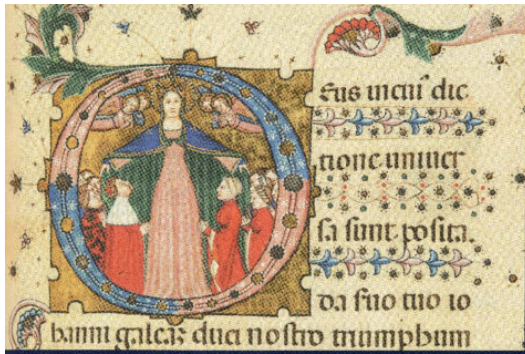 Deus incui' dic
tione univer
sa sunt posita.
da tuo io
hanni galeaz duci nostro triumphum